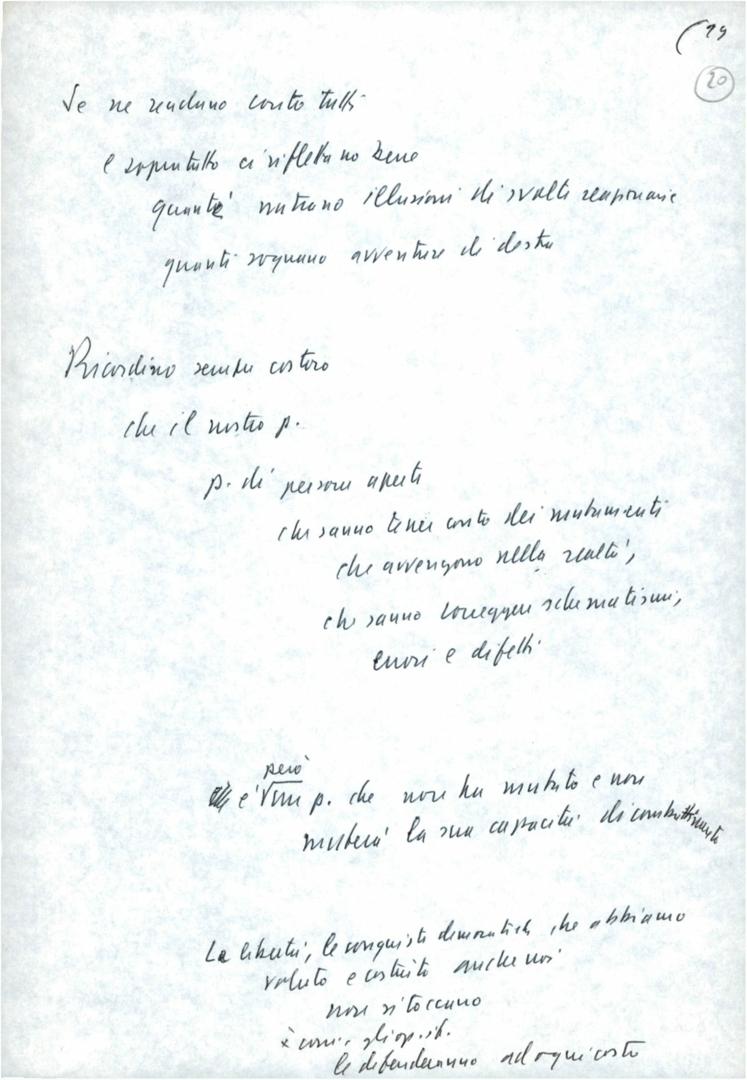 19
20
Se ne rendano conto tutti
e soprattutto ci riflettano bene
quanti nutrano illusioni di svolte reazionarie
quanti sognano avventure di destra
Ricordino sempre costoro
che il nostro p.
p. di persone aperte
che sanno tener conto dei mutamenti
che avvengono nella realtà,
che sanno correggere schematismi,
errori e difetti
però
è un p. che non ha mutato e non
muterà la sua capacità di combattimento
La libertà, le conquiste democratiche che abbiamo
voluto e costruito anche noi
non si toccano
com. e gli op.
le difenderanno ad ogni costo